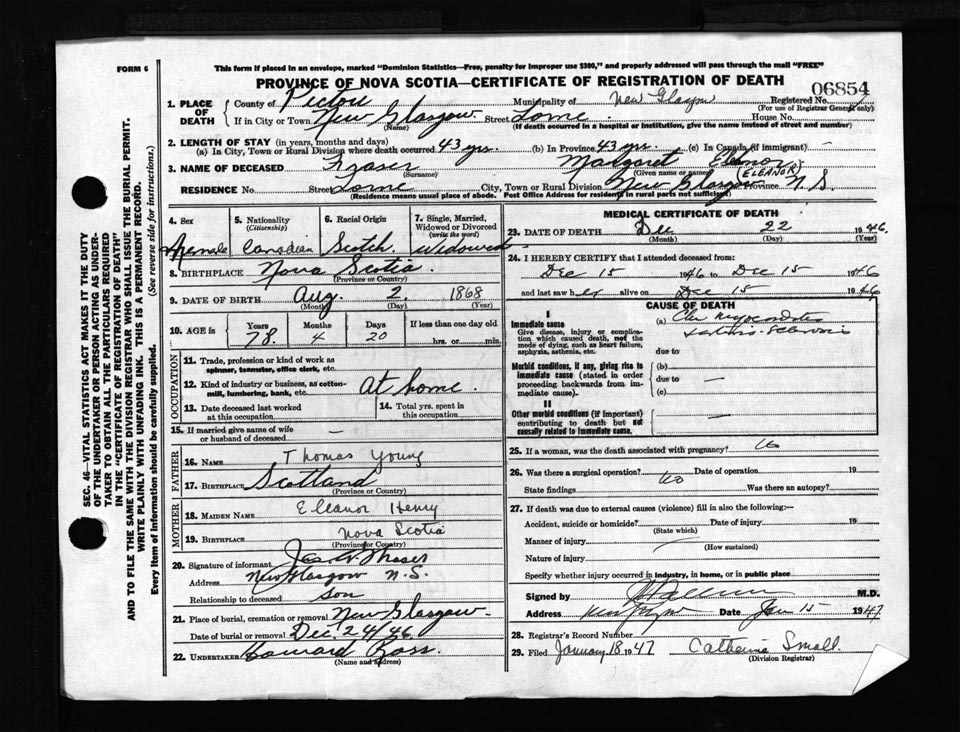 FORM 6
This form if placed in an envelope, marked "Dominion Statistics—Free, penalty for improper use $300," and properly addressed will pass through the mail "FREE"
PROVINCE OF NOVA SCOTIA—CERTIFICATE OF REGISTRATION OF DEATH
06854
1. PLACE OF DEATH County of Pictou Municipality of New Glasgow Registered No.
(For use of Registrar General only)
If in City or Town New Glasgow Street Lorne House No.
(Name) (If death occurred in a hospital or institution, give the name instead of street and number)
2. LENGTH OF STAY (in years, months and days)
(a) In City, Town or Rural Division where death occurred 43 yrs. (b) In Province 43 yrs. (c) In Canada (if immigrant) —
3. NAME OF DECEASED Fraser Margaret Eleanor
(Surname) (Given name or names) (ELEANOR)
RESIDENCE No. Street Lorne City, Town or Rural Division New Glasgow Province N.S.
(Residence means usual place of abode. Post Office Address for residents in rural parts not sufficient)
4. Sex 5. Nationality (Citizenship) 6. Racial Origin 7. Single, Married, Widowed or Divorced (write the word)
Female Canadian Scotch Widowed
8. BIRTHPLACE Nova Scotia.
(Province or Country)
9. DATE OF BIRTH Aug. 2. 1868
(Month) (Day) (Year)
10. AGE in Years Months Days If less than one day old
78. 4 20 hrs. or min.
OCCUPATION
11. Trade, profession or kind of work as spinner, teamster, office clerk, etc.
12. Kind of industry or business, as cotton-mill, lumbering, bank, etc. At home.
13. Date deceased last worked at this occupation 14. Total yrs. spent in this occupation
15. If married give name of wife or husband of deceased —
FATHER
16. NAME Thomas Young
17. BIRTHPLACE Scotland
(Province or Country)
MOTHER
18. MAIDEN NAME Eleanor Henry
19. BIRTHPLACE Nova Scotia
(Province or Country)
20. Signature of informant Fraser
Address New Glasgow N.S.
Relationship to deceased son
21. Place of burial, cremation or removal New Glasgow.
Date of burial or removal Dec. 24/46.
22. UNDERTAKER Howard Ross.
(Name and address)
MEDICAL CERTIFICATE OF DEATH
23. DATE OF DEATH Dec 22 1946
(Month) (Day) (Year)
24. I HEREBY CERTIFY that I attended deceased from:
Dec 15 1946 to Dec 15 1946
and last saw her alive on Dec 15 1946
CAUSE OF DEATH
I
Immediate cause (a)
Give disease, injury or complication which caused death, not the mode of dying, such as heart failure, asphyxia, asthenia, etc. due to
Morbid conditions, if any, giving rise to immediate cause (stated in order proceeding backwards from immediate cause). (b)
due to —
(c)
II
Other morbid conditions (if important) contributing to death but not causally related to immediate cause. —
25. If a woman, was the death associated with pregnancy? No
26. Was there a surgical operation? No Date of operation 19
State findings Was there an autopsy?
27. If death was due to external causes (violence) fill in also the following:—
Accident, suicide or homicide? Date of injury 19
(State which)
Manner of injury
(How sustained)
Nature of injury
Specify whether injury occurred in industry, in home, or in public place
Signed by M.D.
Address New Glasgow Date Jan 15 1947
28. Registrar's Record Number
29. Filed January 18 1947 Catherine Small.
(Division Registrar)
SEC. 46—VITAL STATISTICS ACT MAKES IT THE DUTY
OF THE UNDERTAKER OR PERSON ACTING AS UNDERTAKER TO OBTAIN ALL THE PARTICULARS REQUIRED
IN THE "CERTIFICATE OF REGISTRATION OF DEATH"
AND TO FILE THE SAME WITH THE DIVISION REGISTRAR WHO SHALL ISSUE THE BURIAL PERMIT.
WRITE PLAINLY WITH UNFADING INK. THIS IS A PERMANENT RECORD.
Every item of information should be carefully supplied. (See reverse side for instructions.)